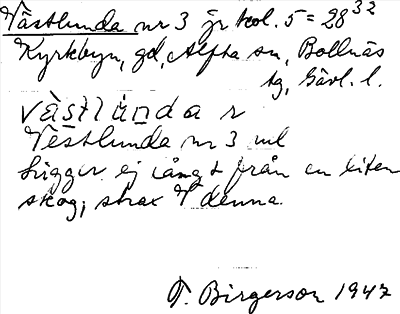 Västlunda nr 3 jr kol. 5 = 28³²
Kyrkbyn, gd, Alfta sn, Bollnäs
tg, Gävl. l.
västlúnda r
Västlunda nr 3 ml
Ligger ej långt från en liten
skog, strax V denna.
T. Birgerson 1947